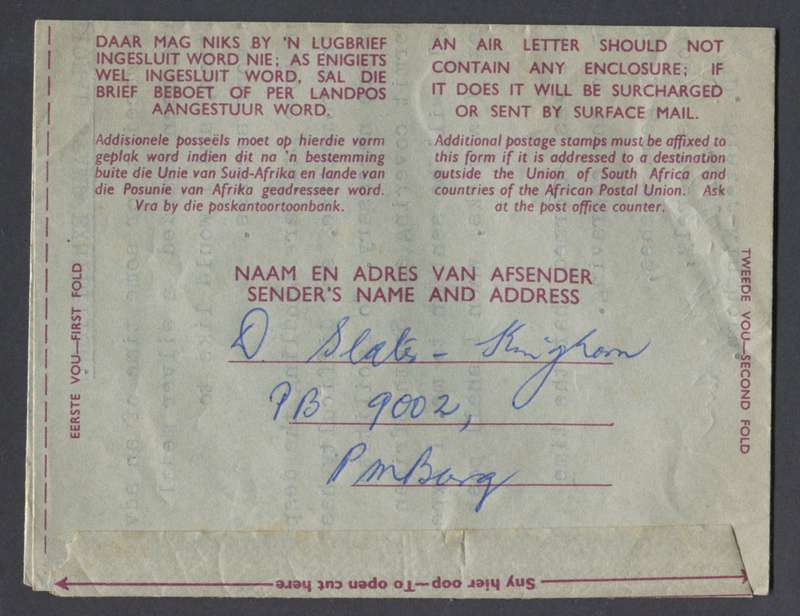 DAAR MAG NIKS BY 'N LUGBRIEF
INGESLUIT WORD NIE; AS ENIGIETS
WEL INGESLUIT WORD, SAL DIE
BRIEF BEBOET OF PER LANDPOS
AANGESTUUR WORD.
Addisionele posseëls moet op hierdie vorm
geplak word indien dit na 'n bestemming
buite die Unie van Suid-Afrika en lande van
die Posunie van Afrika geadresseer word.
Vra by die poskantoortoonbank.
AN AIR LETTER SHOULD NOT
CONTAIN ANY ENCLOSURE; IF
IT DOES IT WILL BE SURCHARGED
OR SENT BY SURFACE MAIL.
Additional postage stamps must be affixed to
this form if it is addressed to a destination
outside the Union of South Africa and
countries of the African Postal Union. Ask
at the post office counter.
EERSTE VOU—FIRST FOLD
TWEEDE VOU—SECOND FOLD
NAAM EN ADRES VAN AFSENDER
SENDER'S NAME AND ADDRESS
D. Slater - Kinghorn
PB 9002,
PMBurg
Sny hier oop—To open cut here